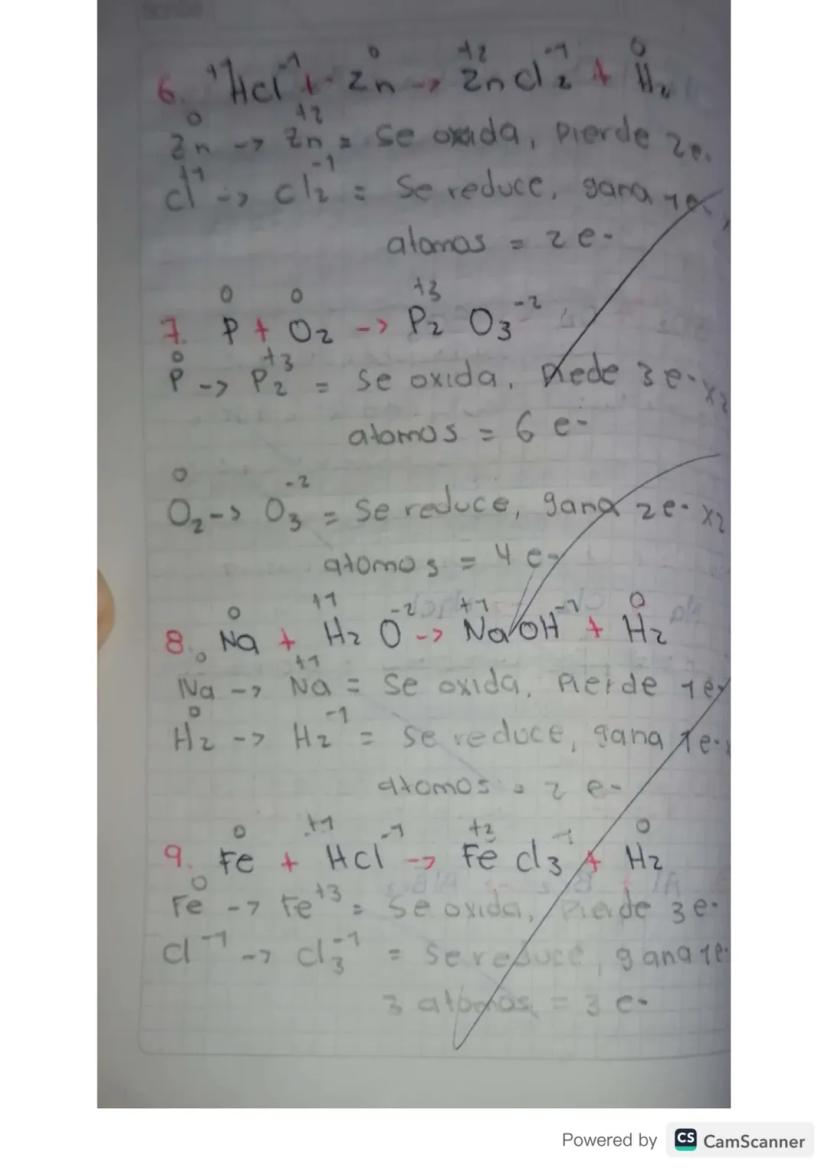 6. +1 HCl -1 + Zn 0 -> Zn +2 Cl2 -1 + H2 0
Zn 0 -> Zn +2 = se oxida, pierde 2e.
Cl +1 -> Cl2 -1 = Se reduce, gana 1e
atomos = 2 e-
7. P 0 + O2 0 -> P2 +3 O3 -2
P 0 -> P2 +3 = se oxida, piede 3 e- x2
atomos = 6 e-
O2 0 -> O3 -2 = se reduce, gana 2e- x2
atomos = 4 e-
8. Na 0 + H2 +1 O -2 -> Na +1 OH -1 + H2 0
Na 0 -> Na +1 = se oxida, Pierde 1e
H2 0 -> H2 -1 = se reduce, gana 1e-
atomos = 2 e-
9. Fe 0 + H +1 Cl -1 -> Fe +2 Cl3 -1 + H2 0
Fe 0 -> Fe +3 = se oxida, Pierde 3 e-
Cl -1 -> Cl3 -1 = se reduce, gana 1e-
3 atomos = 3 e-
Powered by CS CamScanner